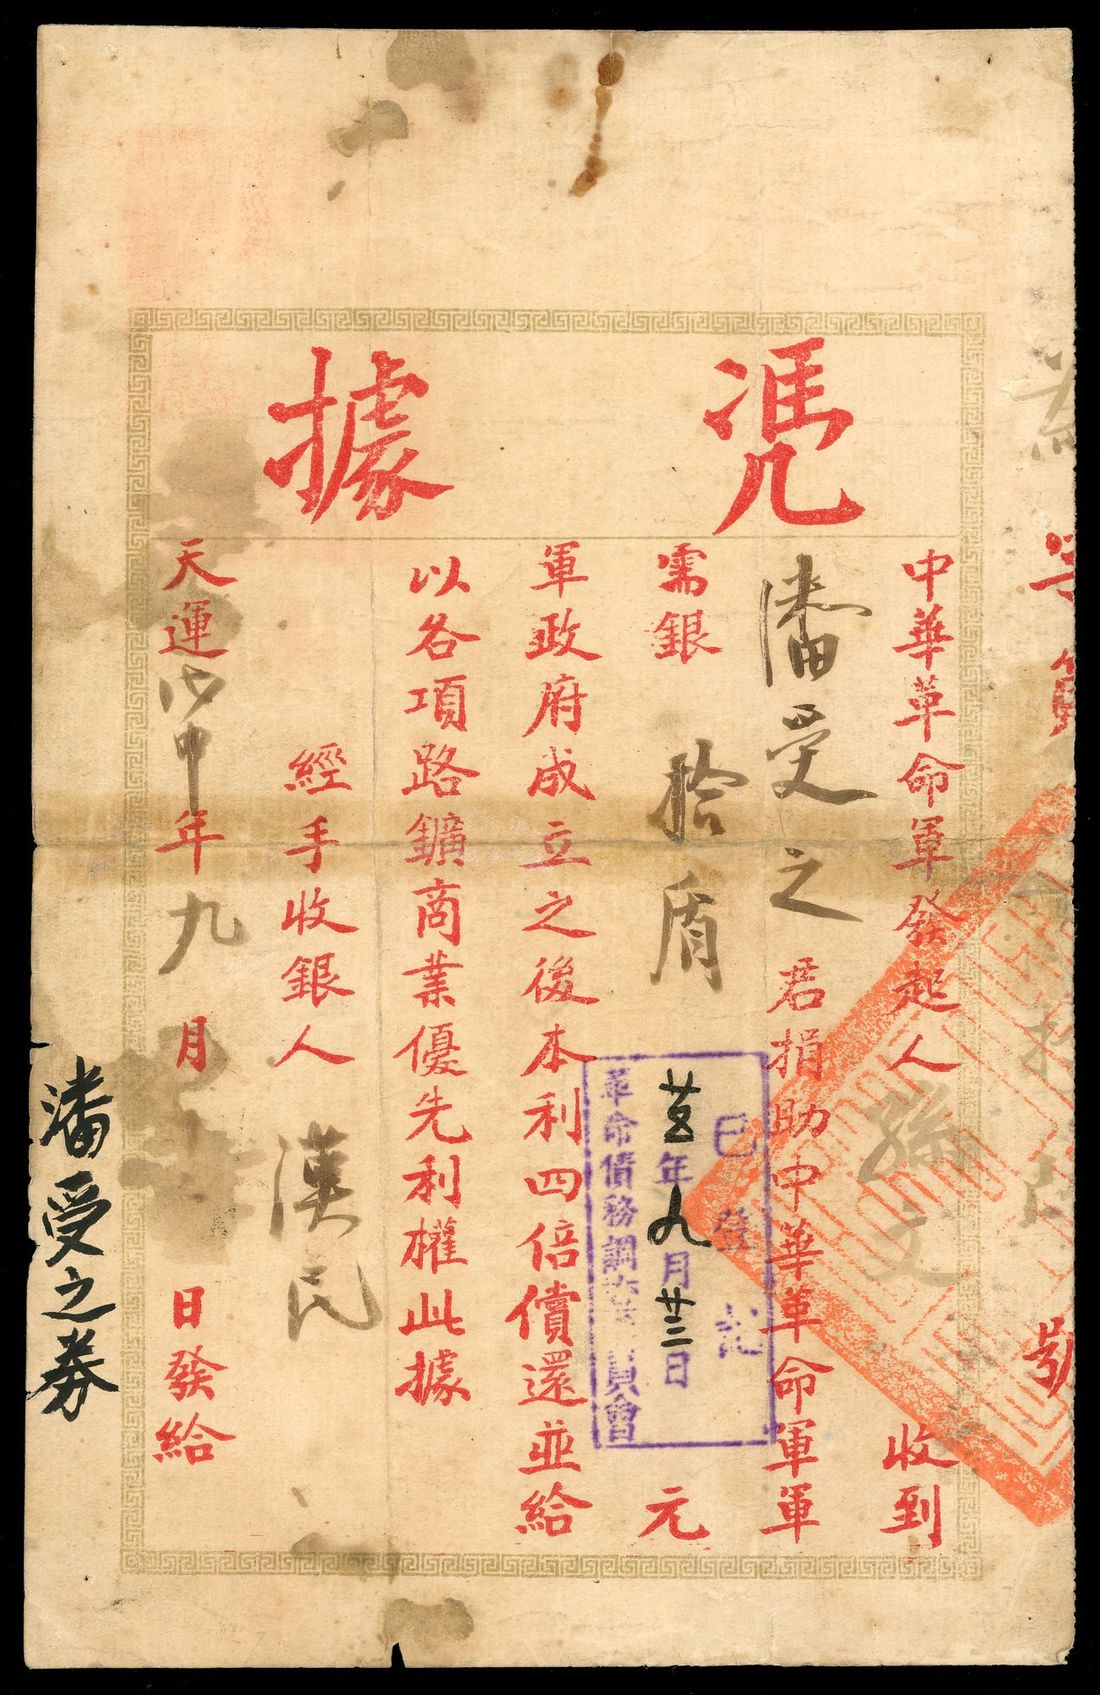 憑據
字第
號
中華革命軍發起人孫文收到
潘受之君捐助中華革命軍軍
需銀拾盾元
軍政府成立之後本利四倍償還並給
以各項路鑛商業優先利權此據
經手收銀人漢民
天運戊申年九月日發給
已登記
廿五年九月廿三日
革命債務調查委員會
潘受之券